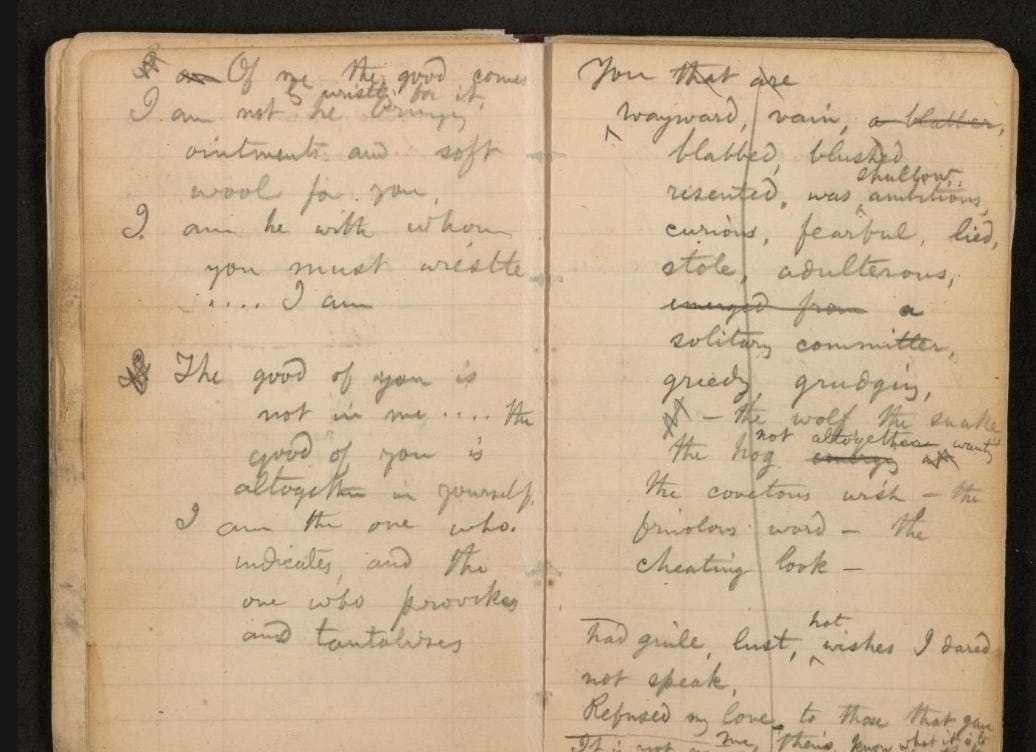 Of me the good comes
by wrestling for it,
I am not he bringing
ointments and soft
wool for you,
I am he with whom
you must wrestle
.... I am
The good of you is
not in me .... the
good of you is
altogether in yourself,
I am the one who
indicates, and the
one who provokes
and tantalizes
You that are
wayward, vain, a blabber,
blabbed, blushed
shallow,
resented, was ambitious,
curious, fearful, lied,
stole, adulterous,
emerged from a
solitary committer,
greedy, grudging,
— the wolf the snake
not altogether wanting
the hog
the covetous wish — the
frivolous word — the
cheating look —
hot
had guile, lust, wishes I dared
not speak,
Refused my love to those that gave
me, theirs, know what it is to
It is not